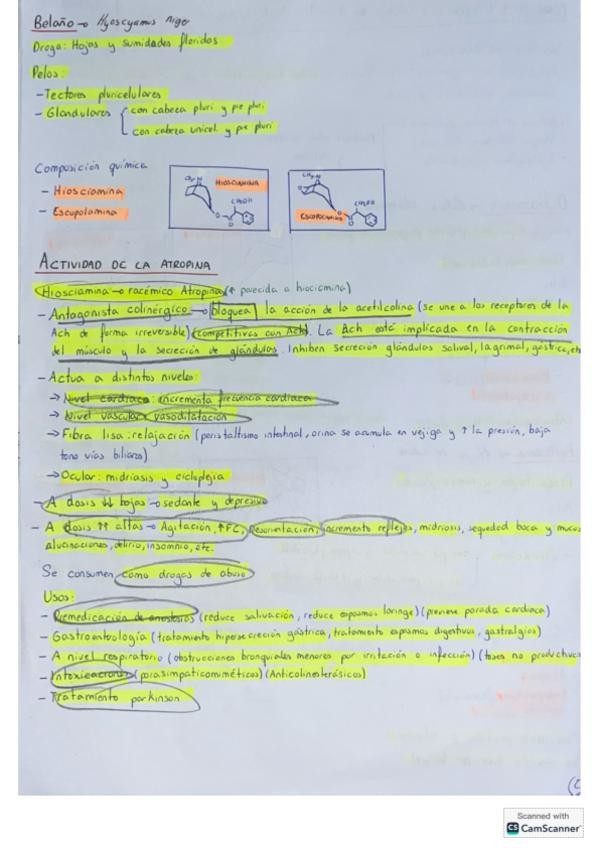 Beleño → Hyoscyamus niger
Droga: Hojas y sumidades floridas
Pelos:
- Tectores pluricelulares
- Glandulares { con cabeza pluri y pie pluri
con cabeza unicel. y pie pluri
Composición química
- Hiosciamina
- Escopolamina
HIOSCIAMINA
CH₂OH
ESCOPOLAMINA
CH₂OH
ACTIVIDAD DE LA ATROPINA
Hiosciamina → racémico Atropina (↑ parecida a hiociamina)
- Antagonista colinérgico → bloquea la acción de la acetilcolina (se une a los receptores de la
Ach de forma irreversible) (competitivas con Ach). La Ach está implicada en la contracción
del músculo y la secreción de glándulas. Inhiben secreción glándulas salival, lagrimal, gástrica, etc
- Actua a distintos niveles:
→ Nivel cardiaco: incrementa frecuencia cardiaca
→ Nivel vascular: vasodilatación
→ Fibra lisa: relajación (peristaltismo intestinal, orina se acumula en vejiga y ↑ la presión, baja
tono vías biliares)
→ Ocular: midriasis y cicloplejia
- A dosis ↓↓ bajas → sedante y depresivo
- A dosis ↑↑ altas → Agitación, ↑FC, desorientación, incremento reflejos, midriasis, sequedad boca y mucos
alucinaciones, delirio, insomnio, etc.
Se consumen como drogas de abuso
Usos:
- Premedicación de anestesias (reduce salivación, reduce espasmos laringe) (previene parada cardiaca)
- Gastroenterología (tratamiento hipersecreción gástrica, tratamiento espasmos digestivos, gastralgias)
- A nivel respiratorio (obstrucciones bronquiales menores por irritación o infección) (toses no productivas
- Intoxicaciones (parasimpaticomiméticos) (Anticolinesterásicos)
- Tratamiento parkinson
Scanned with
CS CamScanner